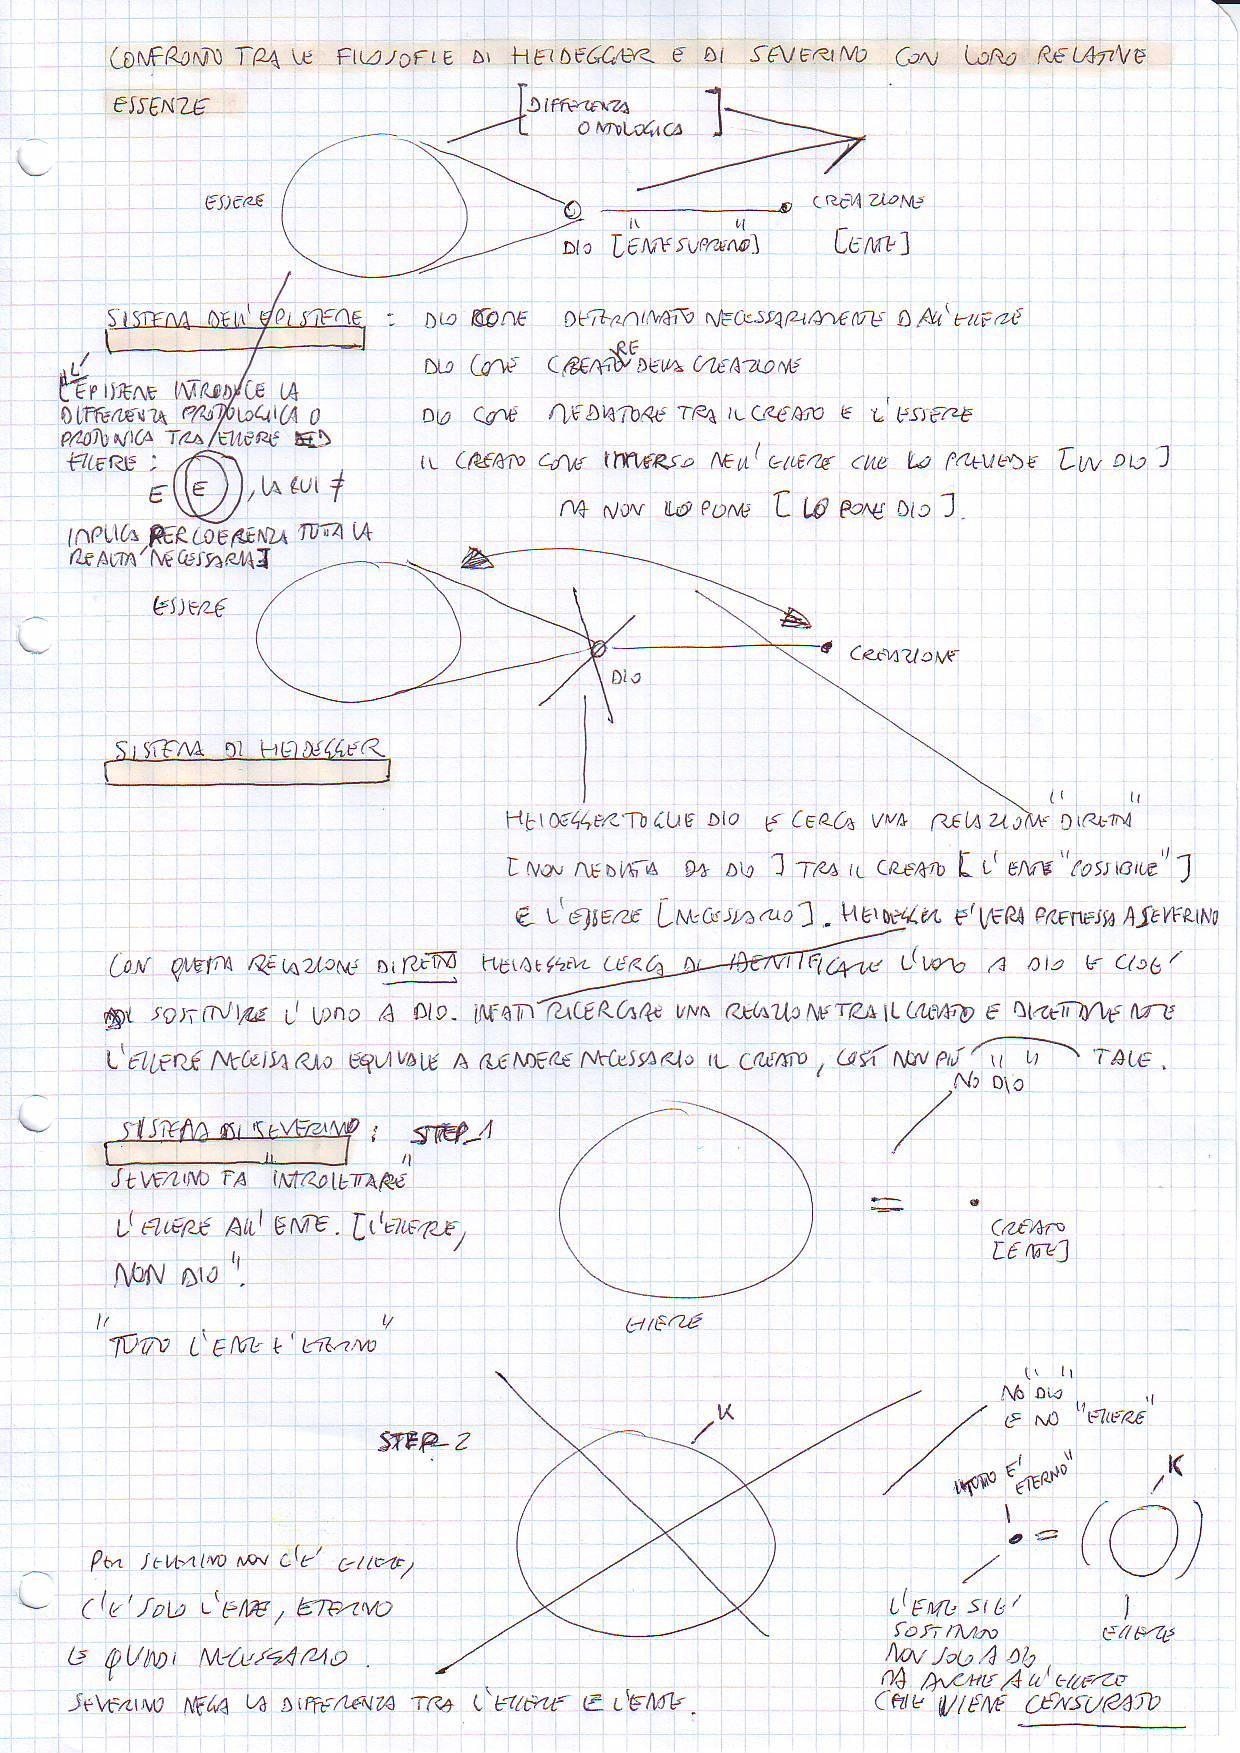 CONFRONTO TRA LE FILOSOFIE DI HEIDEGGER E DI SEVERINO CON LORO RELATIVE
ESSENZE
[DIFFERENZA
ONTOLOGICA]
ESSERE
CREAZIONE
DIO ["ENTE SUPREMO"]
[ENTE]
SISTEMA DELL'EPISTEME : DIO COME DETERMINATO NECESSARIAMENTE DALL'ESSERE
DIO COME CREATORE DELLA CREAZIONE
DIO COME MEDIATORE TRA IL CREATO E L'ESSERE
IL CREATO COME IMMERSO NELL'ESSERE CHE LO PREVEDE [IN DIO]
MA NON LO PONE [LO PONE DIO].
[L'EPISTEME INTRODUCE LA
DIFFERENZA PROTOLOGICA O
PROTONICA TRA ESSERE ED
ESSERE :
E (E), LA CUI ≠
IMPLICA PER COERENZA TUTTA LA
REALTA' NECESSARIA]
ESSERE
DIO
CREAZIONE
SISTEMA DI HEIDEGGER
HEIDEGGER TOGLIE DIO E CERCA UNA RELAZIONE "DIRETTA"
[NON MEDIATA DA DIO] TRA IL CREATO [L'ENTE "POSSIBILE"]
E L'ESSERE [NECESSARIO]. HEIDEGGER E' VERA PREMESSA A SEVERINO
CON QUESTA RELAZIONE DIRETTA HEIDEGGER CERCA DI IDENTIFICARE L'UOMO A DIO E CIOE'
DI SOSTITUIRE L'UOMO A DIO. INFATTI RICERCARE UNA RELAZIONE TRA IL CREATO E DIRETTAMENTE
L'ESSERE NECESSARIO EQUIVALE A RENDERE NECESSARIO IL CREATO, COSÌ NON PIÙ " " TALE.
NO DIO
SISTEMA DI SEVERINO : STEP_1
SEVERINO FA "INTROIETTARE"
L'ESSERE ALL'ENTE. [L'ESSERE,
NON DIO".
=
CREATO
[ENTE]
ESSERE
"TUTTO L'ENTE E' ETERNO"
STEP_2
K
NO "DIO"
E NO "ESSERE"
"TUTTO E'
ETERNO"
K
= ( )
PER SEVERINO NON C'E' ESSERE,
C'E' SOLO L'ENTE, ETERNO
E QUINDI NECESSARIO.
SEVERINO NEGA LA DIFFERENZA TRA L'ESSERE E L'ENTE.
L'ENTE SI E'
SOSTITUITO
NON SOLO A DIO
MA ANCHE ALL'ESSERE
CHE VIENE CENSURATO
ESSERE